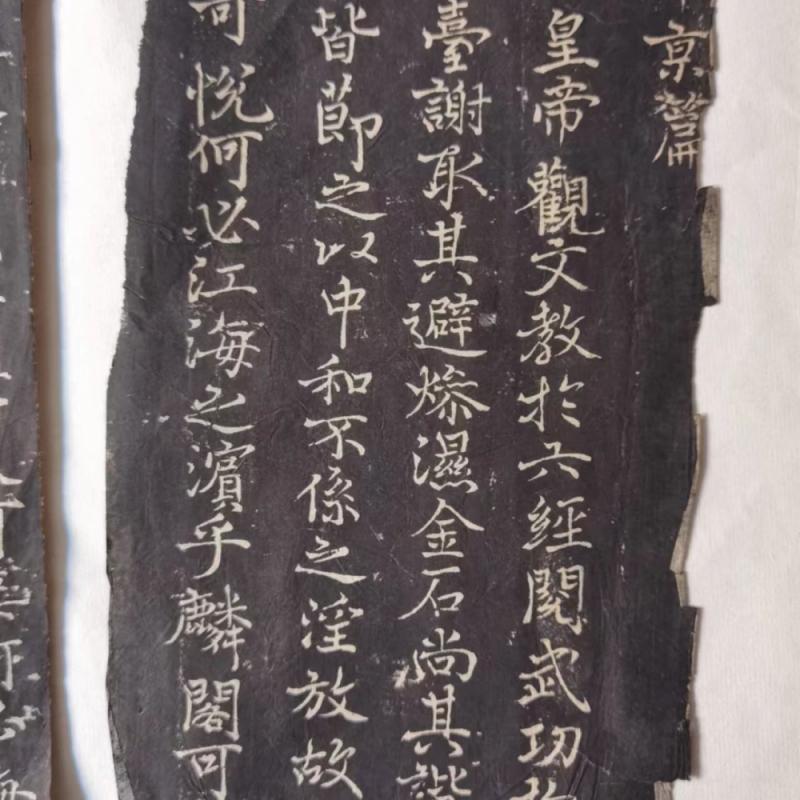 京篇
皇帝觀文教於六經閱武功
臺謝取其避燥濕金石尚其諧
皆節之以中和不係之淫放故
可悅何必江海之濱乎麟閣可